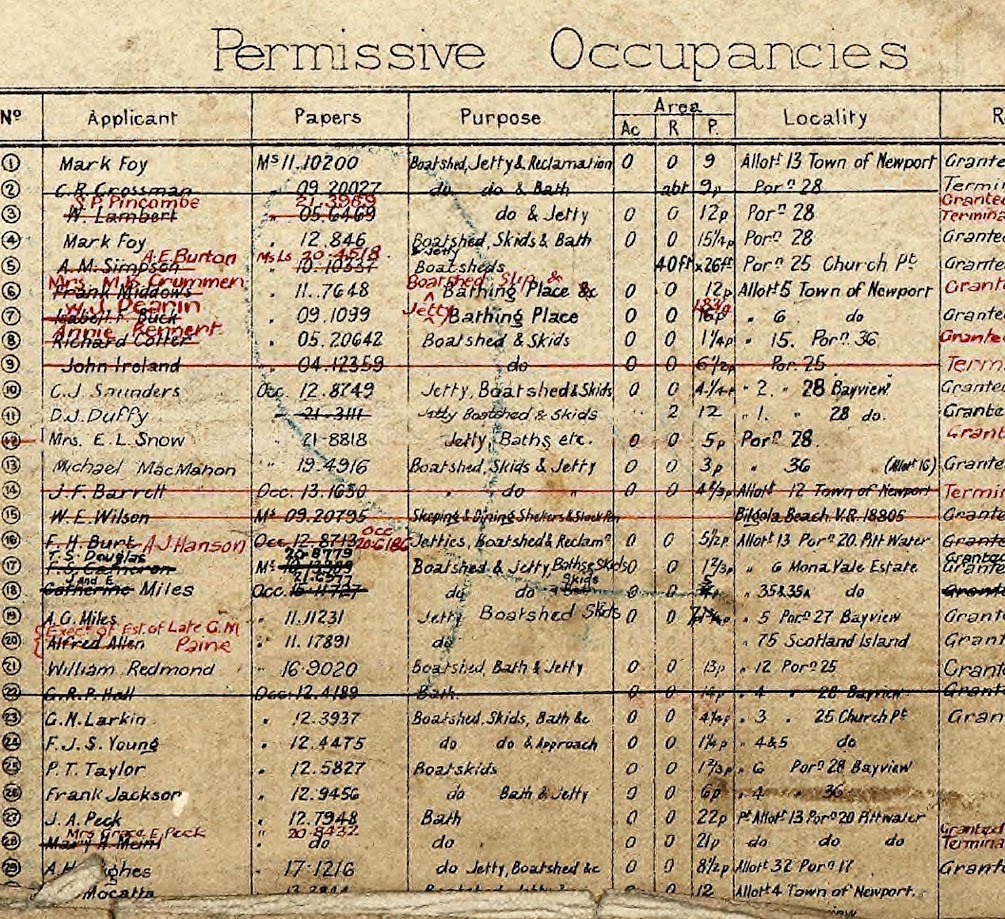 Permissive Occupancies
Nº Applicant Papers Purpose Area Locality
Ac R P.
1 Mark Foy Ms 11.10200 Boatshed, Jetty & Reclamation 0 0 9 Allotᵗ 13 Town of Newport Grante
2 C.R. Crossman " 09.20027 do do & Bath abt 9p Porⁿ 28 Termin
S.P. Pincombe 21.3969 Granted
3 W. Lambert " 05.6469 do & Jetty 0 0 12p Porⁿ 28 Termina
4 Mark Foy " 12.846 Boatshed, Skids & Bath 0 0 15¼p Porⁿ 28 Grante
A.E. Burton Ms Ls 20.4518 & Jetty
5 A.M. Simpson " 10.10337 Boatsheds 40ft x 26ft Porⁿ 25 Church Pᵗ Grante
Mrs. M.B. Crummer Boatshed Slip &
6 Frank Middows " 11.7648 Bathing Place &c 0 0 12p Allotᵗ 5 Town of Newport Grant
W.J. Deanin Jetty
7 Buck " 09.1099 Bathing Place 0 0 16p " 6 do Grante
Annie Rennert
8 Richard Cotter " 05.20642 Boatshed & Skids 0 0 1¼p " 15. Porⁿ 36 Grante
9 John Ireland " 04.12359 do 0 0 6½p Por 25 Term
10 C.J. Saunders Occ. 12.8749 Jetty, Boatshed & Skids 0 0 4¼p " 2. " 28 Bayview Grante
11 D.J. Duffy " 21.3111 Jetty Boatshed & Skids 2 12 " 1. " 28 do. Grante
12 Mrs. E.L. Snow " 21.8818 Jetty, Baths etc. 0 0 5p Porⁿ 28. Grant
13 Michael MacMahon " 19.4916 Boatshed, Skids & Jetty 0 0 3p " 36 (Allotᵗ 16) Grante
14 J.F. Barrett Occ. 13.1650 " do " 0 0 Allotᵗ 12 Town of Newport Termin
15 W.E. Wilson Ms 09.20795 Sleeping & Dining Shelters & Stock Pen Bilgola Beach V.R. 18805 Grante
16 F.H. Burt A.J. Hanson Occ. 12.8713 Occ 20.6186 Jetties, Boatshed & Reclamⁿ 0 0 5½p Allotᵗ 13 Porⁿ 20. Pitt Water Grante
T.S. Douglas 20.8779 Granted
17 T.S. Cameron Ms Boatshed & Jetty, Baths & Skids 0 0 1⅔p " 6 Mona Vale Estate Grante
J and E 21.6577 Skids
18 Catherine Miles Occ. 16.11727 do do & Bath 0 0 " 35 & 35A do Grante
19 A.G. Miles " 11.11231 Jetty Boatshed Skids 0 0 " 5 Porⁿ 27 Bayview Grant
(Exec. of Est. of Late G.M
20 Alfred Allen Paine " 11.17891 do " 75 Scotland Island Gran
21 William Redmond " 16.9020 Boatshed, Bath & Jetty 0 0 13p " 12 Porⁿ 25 Grante
22 G.R.P. Hall Occ. 12.4189 Bath 0 0 14p " 4 " 28 Bayview Grante
23 G.N. Larkin " 12.3937 Boatshed, Skids, Bath &c 0 0 4¼p " 3 " 25 Church Pᵗ Gran
24 F.J.S. Young " 12.4475 do do & Approach 0 0 1¼p " 4 & 5 do
25 P.T. Taylor " 12.5827 Boatskids 0 0 1⅔p " 6 Porⁿ 28 Bayview
26 Frank Jackson " 12.9456 do Bath & Jetty 0 0 6p " 4 " 36
27 J.A. Peck " 12.7948 Bath 0 0 22p Pᵗ Allotᵗ 13 Porⁿ 20 Pittwater
Mrs Grace E. Peck " 20.8432 Granted
28 Mary H. do do 0 0 21p do do do Termina
29 A.H. ghes 17.1216 do Jetty, Boatshed &c 0 0 8½p Allotᵗ 32 Porⁿ 17 Grante
Mocatta 0 0 12 Allotᵗ 4 Town of Newport.